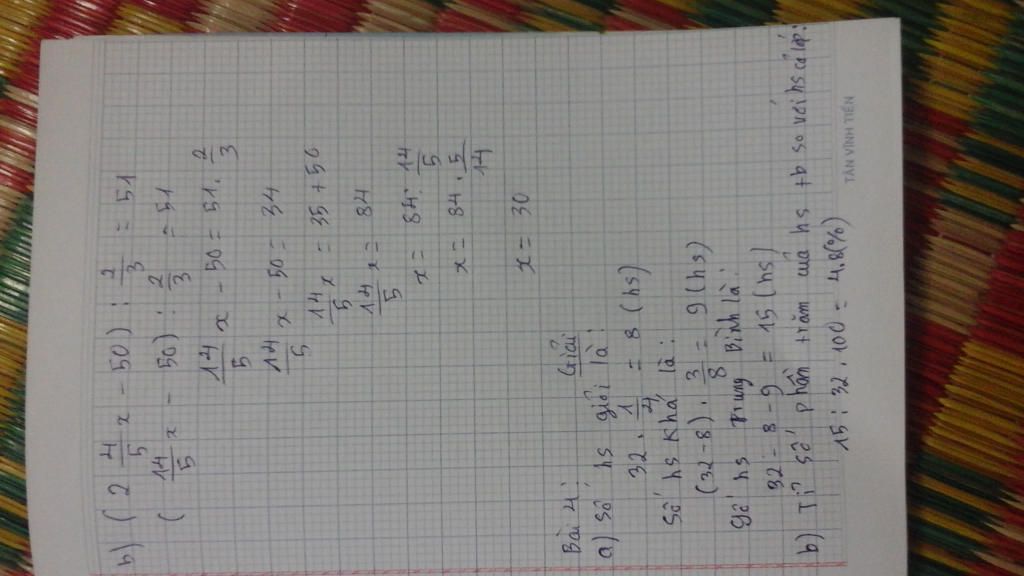 b) ( 2 4/5 x - 50) : 2/3 = 51
( 14/5 x - 50) : 2/3 = 51
14/5 x - 50 = 51 . 2/3
14/5 x - 50 = 34
14/5 x = 35 + 50
14/5 x = 84
x = 84 : 14/5
x = 84 . 5/14
x = 30
Bài 4: Giải
a) Số hs giỏi là:
32 . 1/4 = 8 (hs)
Số hs khá là:
(32 - 8) . 3/8 = 9 (hs)
Số hs trung Bình là:
32 - 8 - 9 = 15 (hs)
b) Tỉ số phần trăm của hs tb so với hs cả lớp:
15 : 32 . 100 = 4.8(%)
TÂN VĨNH TIẾN